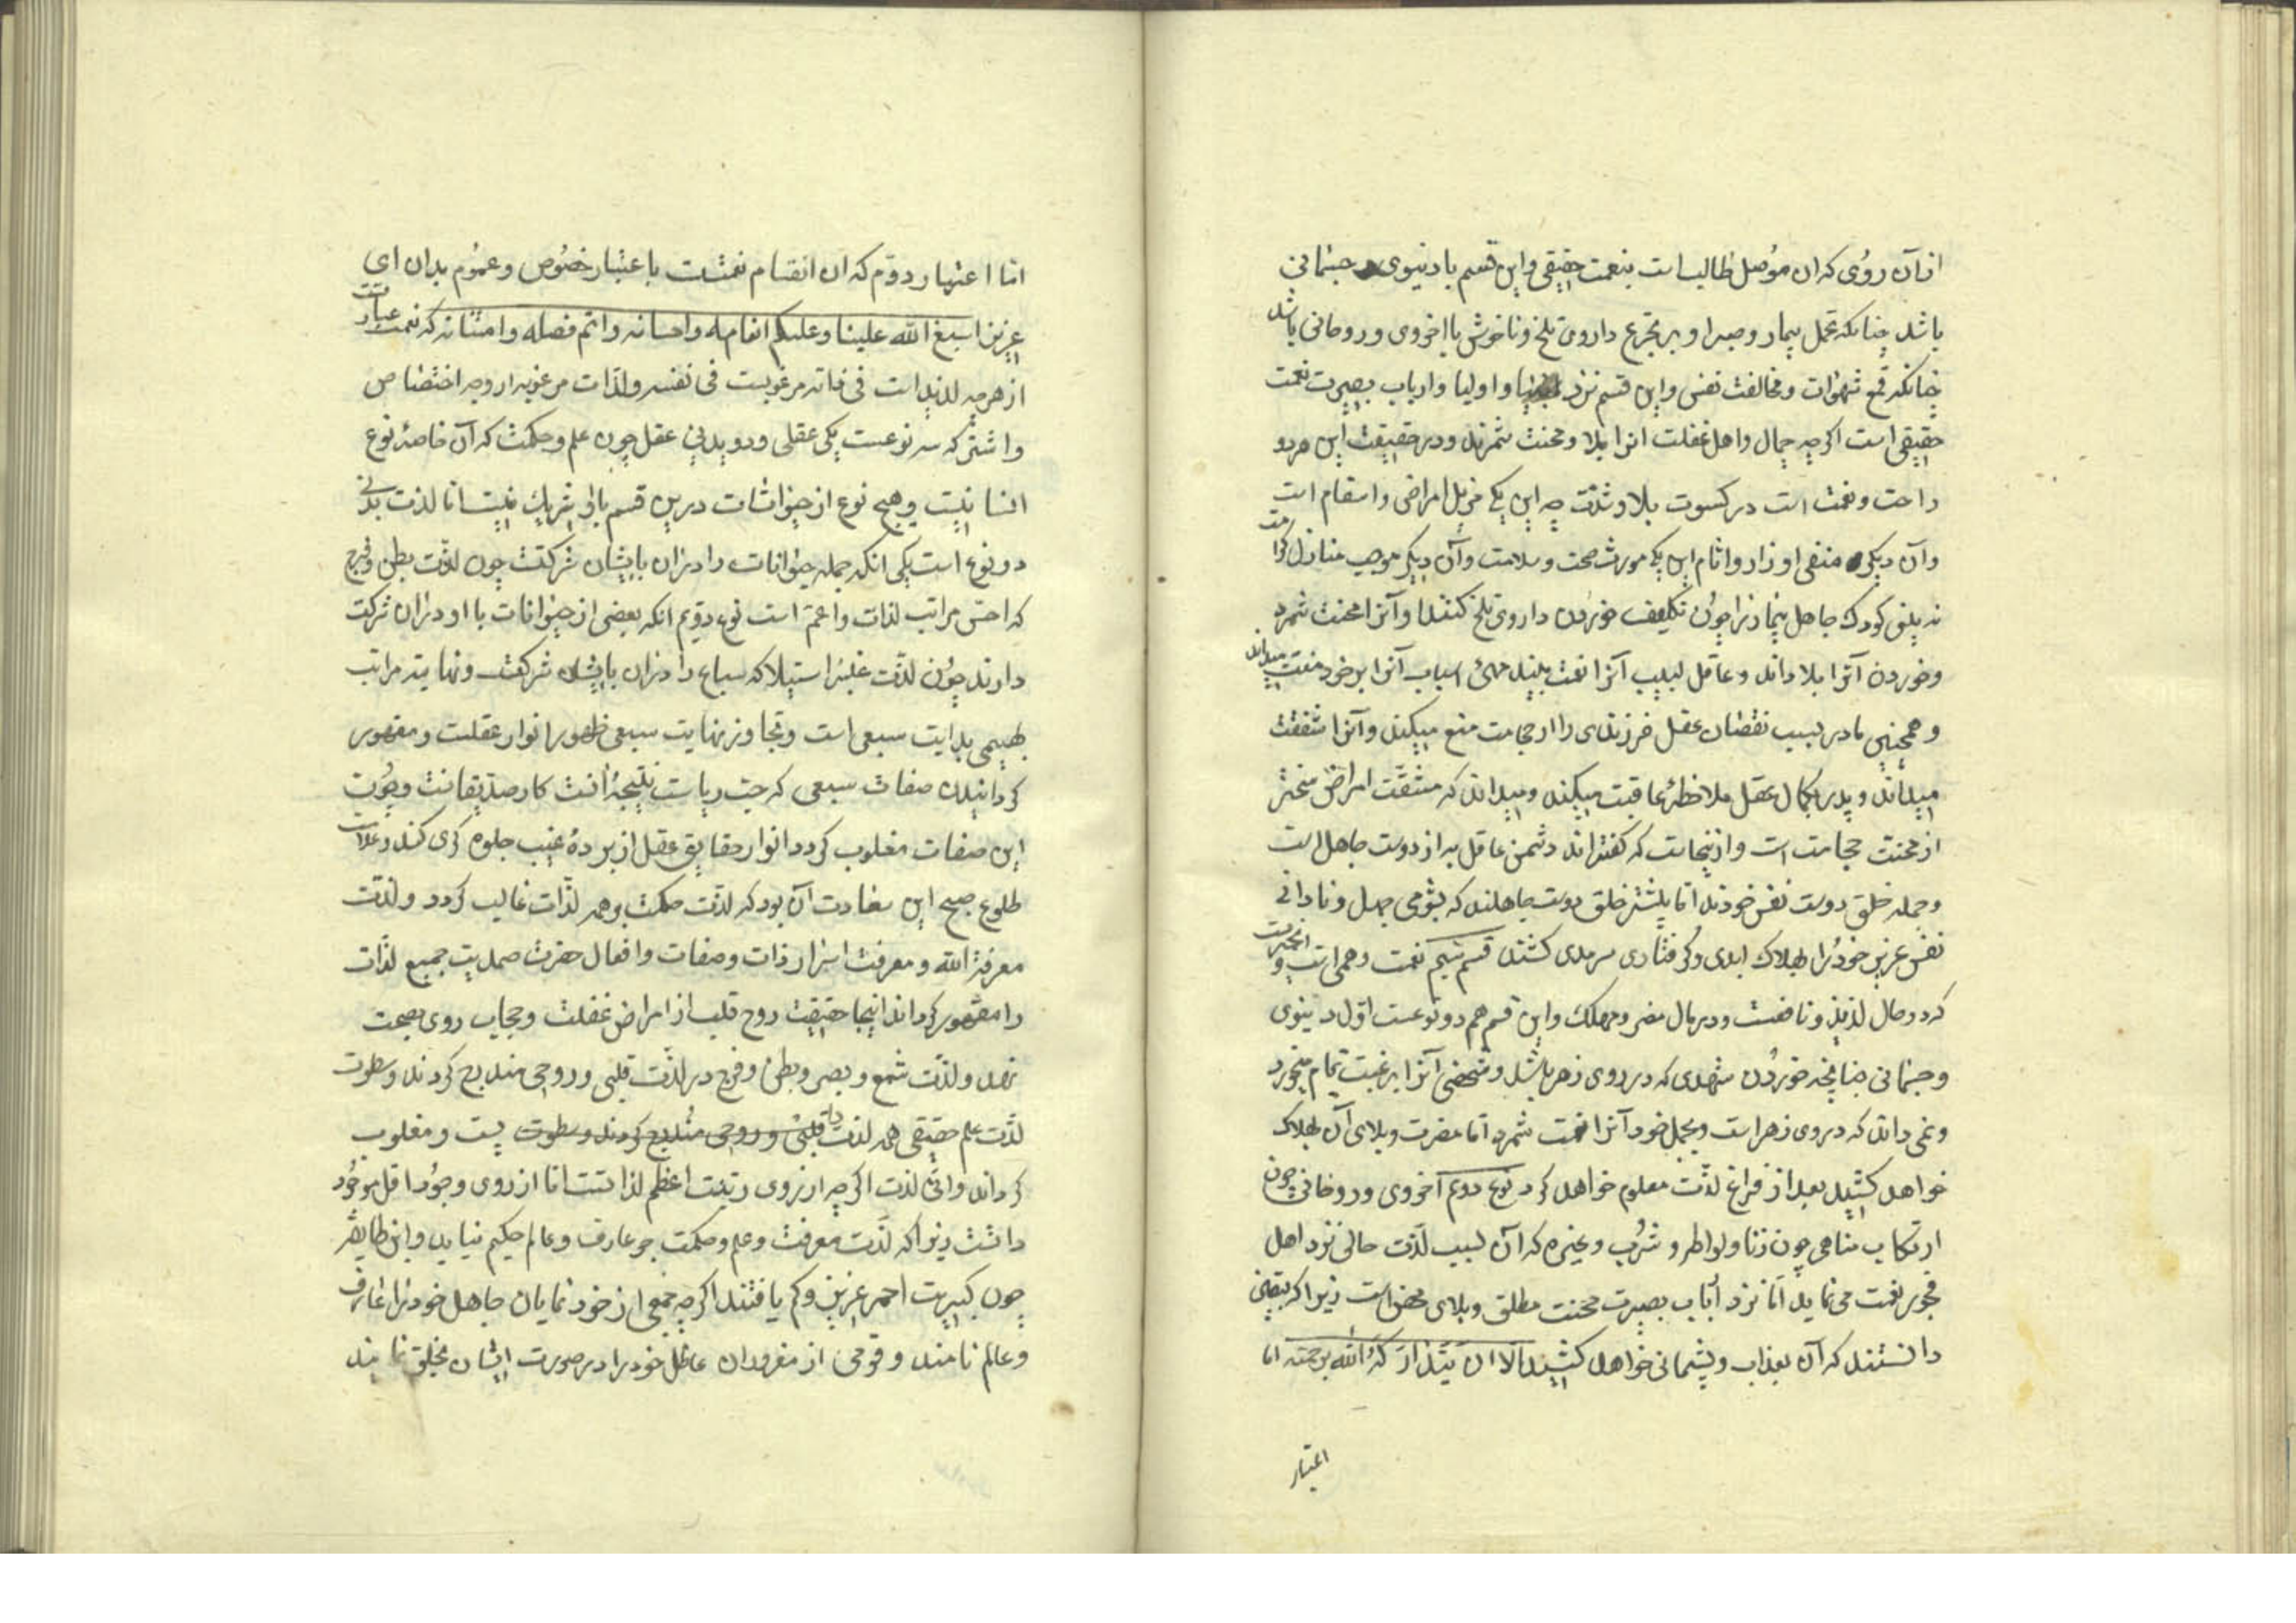 ازآن روی که ان موصل طالب است بنعمت حقیقی واین قسم یا دنیوی جسمانی
باشد چنانکه تحمل بیمار وصبر او بر تجرع داروی تلخ وناخوش یا اخروی وروحانی باشد
چنانکه قمع شهوات ومخالفت نفس واین قسم نزد انبیا واولیا وارباب بصیرت نعمت
حقیقی است اکرچه جهال واهل غفلت انرا بلا ومحنت شمرند ودر حقیقت این هردو
راحت ونعمت است در کسوت بلا وشدت چه این یکی مزیل امراض واسقام است
وآن دیکر منفی اوزار واثام این یکی مورث صحت وسلامت وآن دیکر موجب منازل کرامت
نه بینی کودک جاهل بیمار را چون تکلیف خوردن داروی تلخ کنند او آنرا محنت شمرد
وخوردن آنرا بلا داند وعاقل لبیب آنرا نعمت بیند مهیّئ اسباب آنرا بر خود منّت میداند
وهمچنین مادر بسبب نقصان عقل فرزندی را از حجامت منع میکند وآنرا شفقت
میداند وپدر بکمال عقل ملاحظهٔ عاقبت میکند ومیداند که مشقّت امراض سختر
از محنت حجامت است وازینجاست که کفته‌اند دشمن عاقل به از دوست جاهل است
وجمله خلق دوست نفس خودند اما بیشتر خلق دوست جاهلند که بشومی جهل ونادانی
نفس عزیز خود را بهلاک ابدی وکرفتاری سرمدی کشند قسم سیم نعمت وهمی است وآنچه
که در حال لذیذ ونافعست ودر مال مضر ومهلک واین قسم هم دو نوعست اول دنیوی
وجسمانی چنانچه خوردن شهدی که در وی زهر باشد وشخصی آنرا برغبت تمام میخورد
ونمی داند که در وی زهر است وبجهل خود آنرا نعمت شمرد اما مضرت وبلای آن بهلاک
خواهد کشید بعد از فراغ لذّت معلوم خواهد کرد نوع دوم آخروی وروحانی چون
ارتکاب مناهی چون زنا ولواطه وشرب وغیره که آن بسبب لذّت حالی نزد اهل
فجور نعمت می نماید اما نزد ارباب بصیرت محنت مطلق وبلای محض است زیرا که بیقین
دانستند که آن بعذاب وپشیمانی خواهد کشید الا ان یتدارکه الله برحمته اما
اعتبار
اما اعتبار دوّم که ان انقسام نعمتست باعتبار خصوص وعموم بدان ای
عزیز اسبغ الله علینا وعلیکم انعامه واحسانه واتم فضله وامتنانه که نعمت عبارتست
از هرچه لذیذ است فی ذاته مرغوبست فی نفسه ولذّات مرغوبه از وجه اختصاص
واشترکه سه نوعست یکی عقلی ودو بدنی عقل چون علم وحکمت که آن خاصهٔ نوع
انسانیست وهیچ نوع از حیوانات درین قسم باو شریک نیست اما لذت بدنی
دو نوع است یکی انکه جمله حیوانات را دران باایشان شرکتست چون لذّت بطن وفرج
که احسّ مراتب لذات واعم است نوع دویم انکه بعضی از حیوانات با او دران شرکت
دارند چون لذّت غلبه واستیلا که سباع را دران باایشان شرکتست ونهایته مراتب
بهیمی بدایت سبعی است وتجاوز نهایت سبعی ظهور انوار عقلست ومقهور
کردانیدن صفات سبعی که حب ریاست نتیجهٔ آنست کار صدّیقانست وچون
این صفات مغلوب کردد انوار حقایق عقل از پردهٔ غیب جلوه کری کند وعلامت
طلوع صبح این سعادت آن بود که لذّت حکمت بر همه لذّات غالب کردد ولذّت
معرفة الله ومعرفت اسرار ذات وصفات وافعال حضرت صمدیت جمیع لذّات
را مقهور کرداند اینجا حقیقت روح قلب از امراض غفلت وحجاب روی بصحت
نهد ولذّت شمع وبصر وبطن وفرج در لذّت قلبی وروحی مندرج کردند وسطوت
لذّت علم حقیقی همه لذت را قلبی وروحی مندرج کردند وسطوت پست ومغلوب
کرداند واین لذت اکرچه از روی رتبت اعظم لذاتست اما از روی وجود اقل موجود
داشت زیرا که لذّت معرفت وعلم وحکمت جز عارف وعالم حکیم نیابد واین طایفه
چون کبریت احمر عزیز وکم یافتند اکرچه جمعی از خود نمایان جاهل خود را عارف
وعالم نامند وقومی از مغروران غافل خود را در صورت ایشان بخلق نمایند